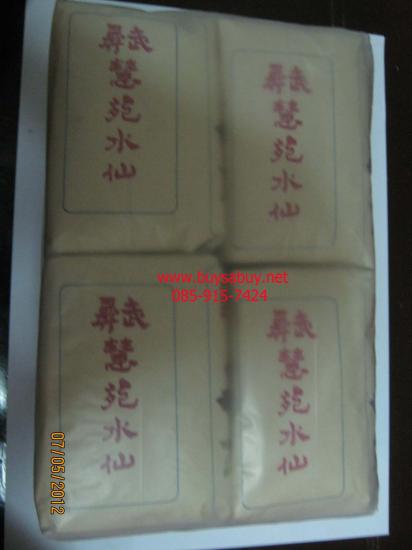 武彝
慧苑水仙
武彝
慧苑水仙
www.buysabuy.net
085-915-7424
武彝
慧苑水仙
武彝
慧苑水仙
07/05/2012